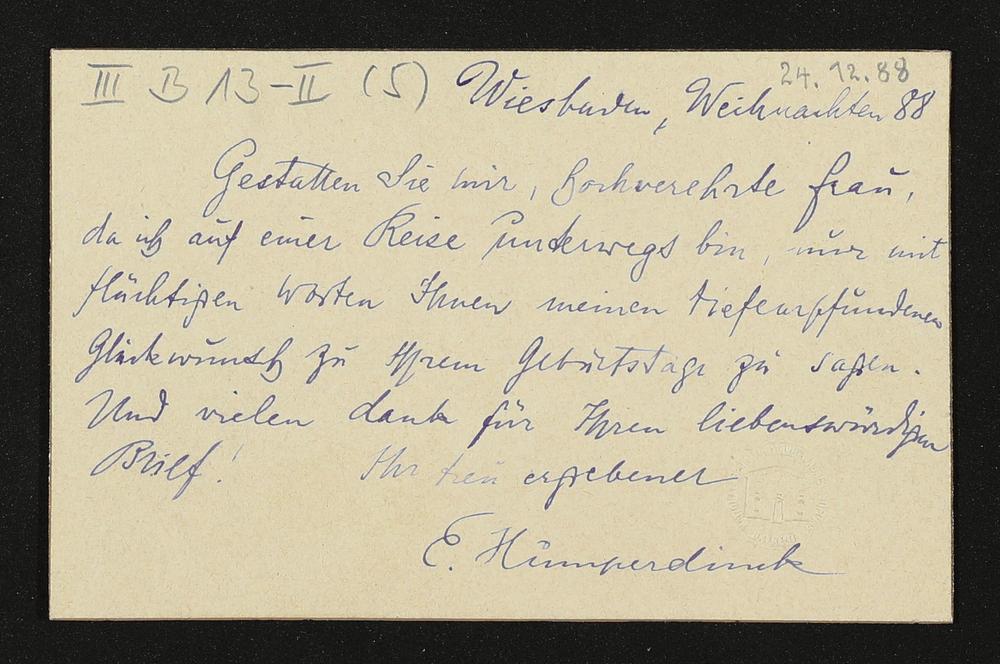 III B 13-II (5)
24. 12. 88
Wiesbaden, Weihnachten 88
Gestatten Sie mir, hochverehrte Frau,
da ich auf einer Reise unterwegs bin, nur mit
flüchtigen Worten Ihnen meinen tiefempfundenen
Glückwunsch zu Ihrem Geburtstage zu sagen.
Und vielen Dank für Ihren liebenswürdigen
Brief! Ihr treu ergebener
E. Humperdinck